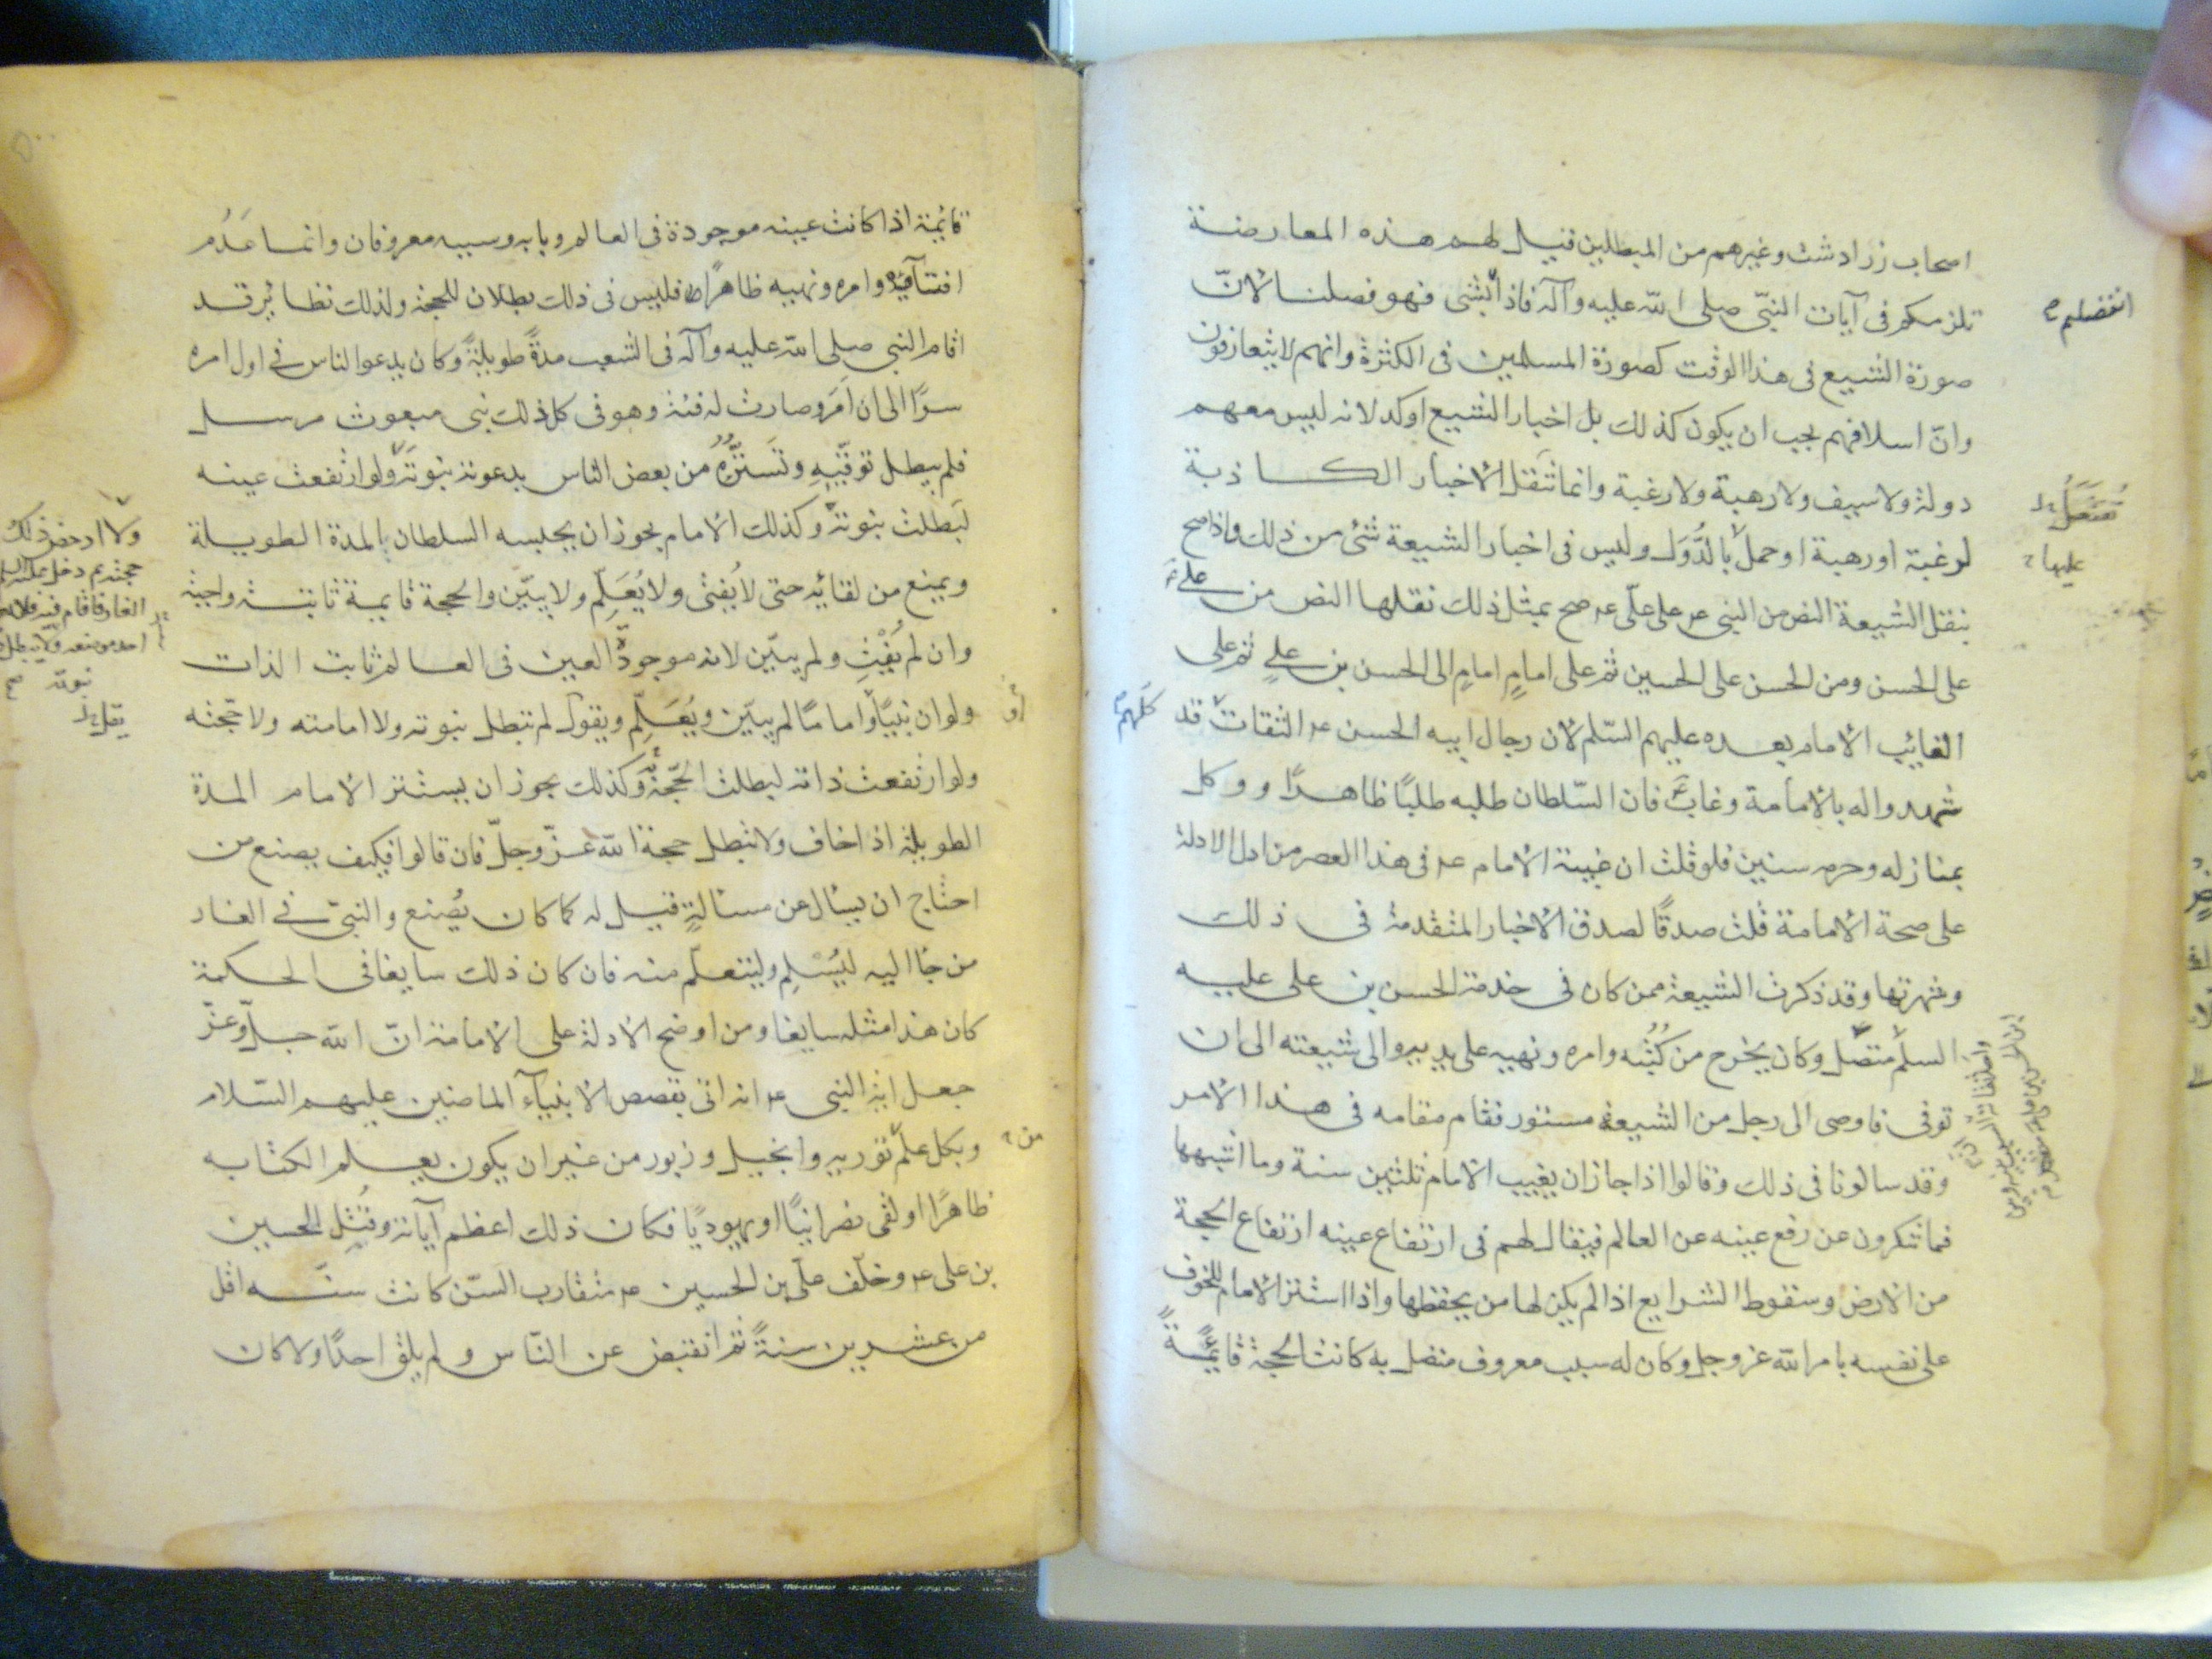 اصحاب زرادشت وغيرهم من المبطلين قيل لهم هذه المعارضة
تلزمكم فى آيات النبّى صلى الله عليه وآله فاذا بشئ فهو فصلنا لانّ
صورة الشيع فى هذا الوقت كصورة المسلمين فى الكثرة وانهم لا يتعارفون
وانّ اسلافهم يجب ان يكون كذلك بل اخبار الشيع اوكد لانه ليس معهم
دولة ولا سيف ولا رهبة ولا رغبة وانما تنقل الاخبار الكاذبة
لرغبة او رهبة او حمل بالدُّوَل وليس فى اخبار الشيعة شئ من ذلك واذا صح
بنقل الشيعة النص من النبى عم على علّى عم صح بمثل ذلك نقلها النص من على عم
على الحسن ومن الحسن على الحسين ثم على امامٍ امامٍ الى الحسن بن علىٍ ثم على
الغايب الامام بعده عليهم السّلم لان رجال ابيه الحسن عم الثقات قد
شهدوا له بالامامة وغاب فان السّلطان طلبه طلبًا ظاهرًا ووكل
بمنازله وحرمه سنين فلو قلت ان غيبة الامام عم فى هذا العصر من ادل الادلة
على صحة الامامة قلت صدقًا لصدق الاخبار المتقدمة فى ذلك
وشهرتها وقد ذكرت الشيعة ممن كان فى خدمة الحسن بن على عليه
السلم متصّل وكان يخرج من كُتُبه وامره ونهيه على يديه والى شيعته الى ان
توفى فاوصى الى رجل من الشيعة مستور فقام مقامه فى هذا الامر
وقد سالونا فى ذلك وقالوا اذا جاز ان يغيب الامام ثلثين سنة وما اشبهها
فما تنكرون عن رفع عينه عن العالم فيقال لهم فى ارتفاع عينه ارتفاع الحجة
من الارض وسقوط الشرايع اذا لم يكن لها من يحفظها واذا استتر الامام للخوف
على نفسه بامر الله عز وجل وكان له سبب معروف متصل به كانت الحجة قايمةً
انفصلتم
عليها
كلهم
قايمة اذا كانت عينه موجودة فى العالم وبابه وسببه معروفان وانما عدم
افتآؤه وامره ونهيه ظاهرًا فليس فى ذلك بطلان للحجة ولذلك نظائر قد
اقام النبى صلى الله عليه وآله فى الشعب مدةً طويلةً وكان يدعو الناس فى اول امره
سرًّا الى ان اَمَر وصارت له فئة وهو فى كل ذلك نبى مبعوث مرسل
فلم يبطل توقّيهِ وتَسَتُّرُهُ من بعض الناس بدعوته نبوته ولو ارتفعت عينه
لبَطلت نبوته وكذلك الامام يجوز ان يحبسه السلطان المدة الطويلة
ويمنع من لقائه حتى لا يُفتى ولا يُعَلِّم ولا يبيّن والحجة قايمة ثابتة واجبة
وان لم يُفْتِ ولم يبيّن لانه موجود العين فى العالم ثابت الذات
ولو ان نبيًّا او امامًا لم يبيّن ويُعَلّم ويقول لم تبطل نبوته ولا امامته ولا حجته
ولو ارتفعت ذاته لبطلت الحجّة وكذلك يجوز ان يستتر الامام المدة
الطويلة اذا خاف ولا تبطل حجة الله عزّ وجلّ فان قالوا فكيف يصنع من
احتاج ان يسأل عن مسألةٍ قيل له كما كان يُصنع والنبىّ فى الغار
من جاء اليه ليُسْلِم وليتعلّم منه فان كان ذلك سايغا فى الحكمة
كان هذا مثله سايغا ومن اوضح الادلة على الامامة انّ الله جلّ وعزّ
جعل اية النبى عم انه اتى بقصص الانبيآء الماضين عليهم السّلام
وبكل علم تورية وانجيل وزبور من غير ان يكون يعلم الكتابه
ظاهرًا او لقى نصرانيًّا او يهوديًّا فكان ذلك اعظم آياته وقُتِل الحسين
بن على عم وخلّف علّى بن الحسين عم متقارب السّن كانت سنّه اقل
من عشرين سنةً ثم انقبض عن النّاس ولم يلق احدًا ولا كان
أو
من